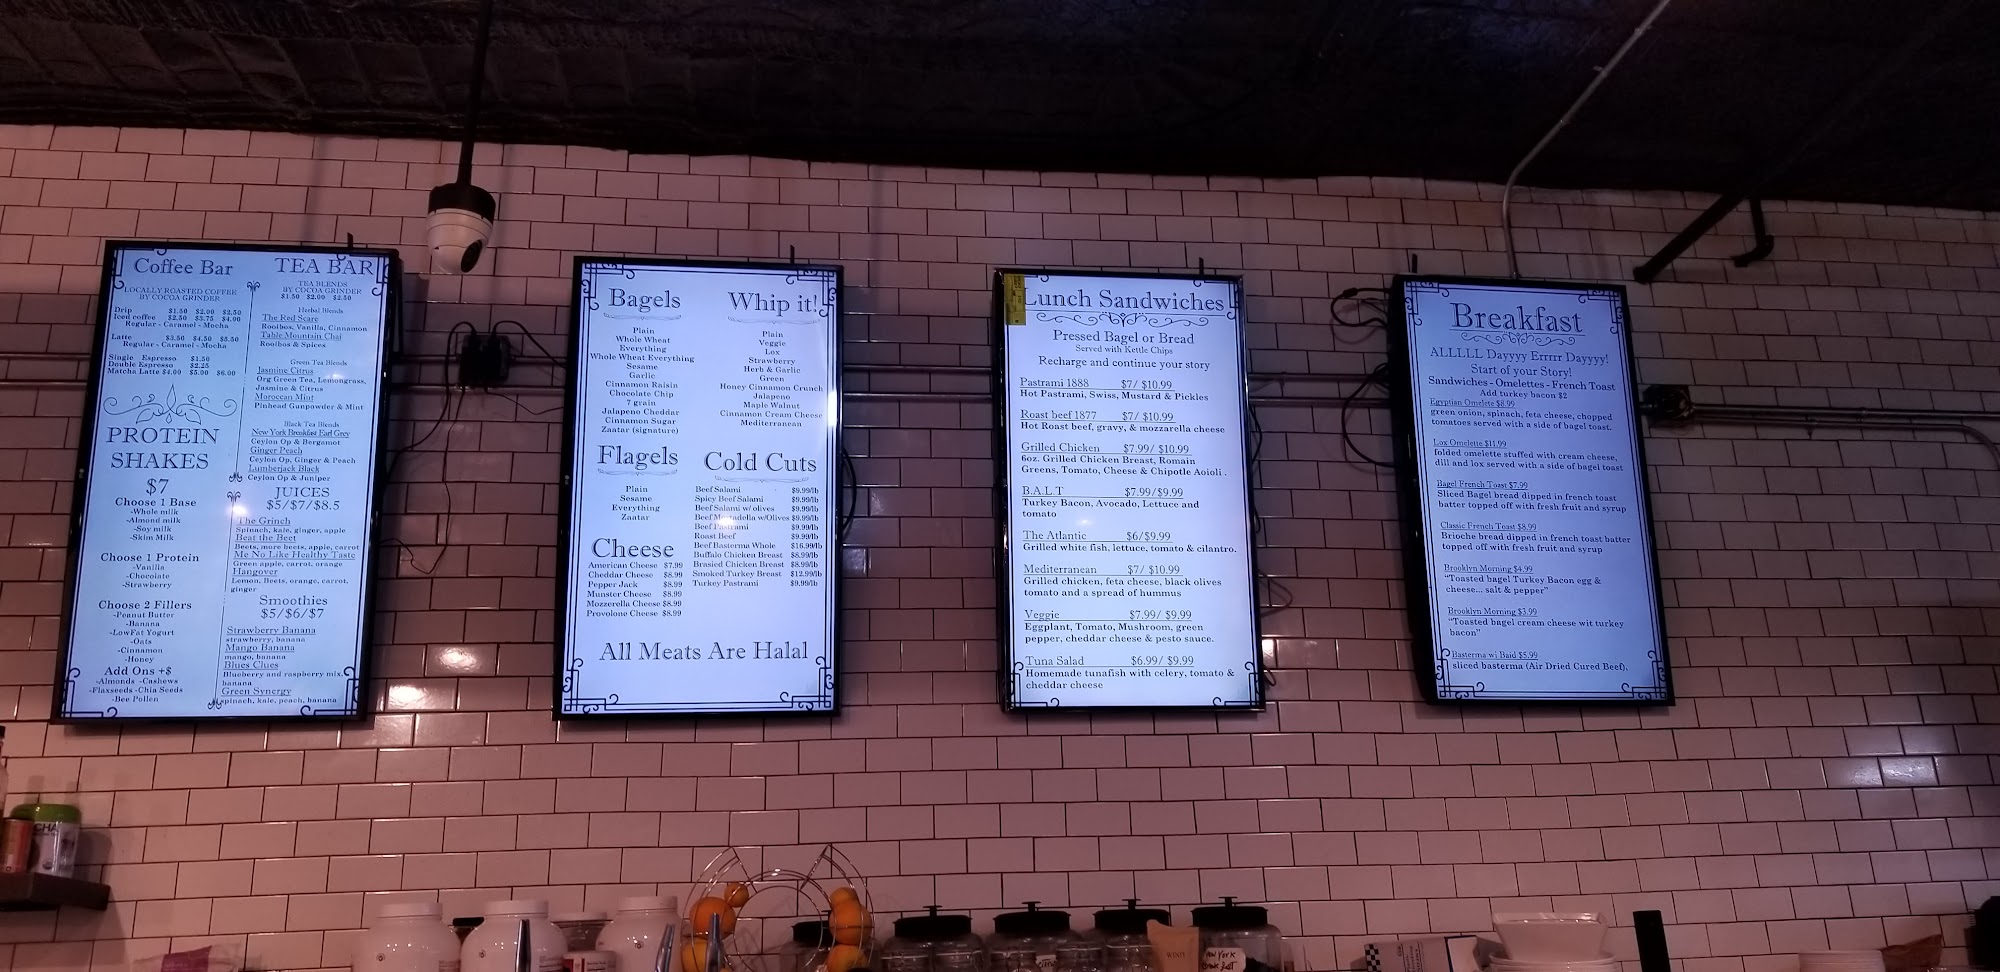 Coffee Bar
LOCALLY ROASTED COFFEE
BY COCOA GRINDER
Drip $1.50 $2.00 $2.50
Iced coffee $2.50 $3.75 $4.00
Regular - Caramel - Mocha
Latte $3.50 $4.50 $5.50
Regular - Caramel - Mocha
Single Espresso $1.50
Double Espresso $2.25
Matcha Latte $4.00 $5.00 $6.00
PROTEIN
SHAKES
$7
Choose 1 Base
-Whole milk
-Almond milk
-Soy milk
-Skim Milk
Choose 1 Protein
-Vanilla
-Chocolate
-Strawberry
Choose 2 Fillers
-Peanut Butter
-Banana
-LowFat Yogurt
-Oats
-Cinnamon
-Honey
Add Ons +$
-Almonds -Cashews
-Flaxseeds -Chia Seeds
-Bee Pollen
TEA BAR
TEA BLENDS
BY COCOA GRINDER
$1.50 $2.00 $2.50
Herbal Blends
The Red Scare
Rooibos, Vanilla, Cinnamon
Table Mountain Chai
Rooibos & Spices
Green Tea Blends
Jasmine Citrus
Org Green Tea, Lemongrass,
Jasmine & Citrus
Moroccan Mint
Pinhead Gunpowder & Mint
Black Tea Blends
New York Breakfast Earl Grey
Ceylon Op & Bergamot
Ginger Peach
Ceylon Op, Ginger & Peach
Lumberjack Black
Ceylon Op & Juniper
JUICES
$5/$7/$8.5
The Grinch
Spinach, kale, ginger, apple
Beat the Beet
Beets, more beets, apple, carrot
Me No Like Healthy Taste
Green apple, carrot, orange
Hangover
Lemon, Beets, orange, carrot,
ginger
Smoothies
$5/$6/$7
Strawberry Banana
strawberry, banana
Mango Banana
mango, banana
Blues Clues
Blueberry and raspberry mix,
banana
Green Synergy
spinach, kale, peach, banana
Bagels
Plain
Whole Wheat
Everything
Whole Wheat Everything
Sesame
Garlic
Cinnamon Raisin
Chocolate Chip
7 grain
Jalapeno Cheddar
Cinnamon Sugar
Zaatar (signature)
Whip it!
Plain
Veggie
Lox
Strawberry
Herb & Garlic
Green
Honey Cinnamon Crunch
Jalapeno
Maple Walnut
Cinnamon Cream Cheese
Mediterranean
Flagels
Plain
Sesame
Everything
Zaatar
Cheese
American Cheese $7.99
Cheddar Cheese $8.99
Pepper Jack $8.99
Munster Cheese $8.99
Mozzerella Cheese $8.99
Provolone Cheese $8.99
Cold Cuts
Beef Salami $9.99/lb
Spicy Beef Salami $9.99/lb
Beef Salami w/ olives $9.99/lb
Beef Mortadella w/Olives $9.99/lb
Beef Pastrami $9.99/lb
Roast Beef $9.99/lb
Beef Basterma Whole $16.99/lb
Buffalo Chicken Breast $8.99/lb
Brasied Chicken Breast $8.99/lb
Smoked Turkey Breast $12.99/lb
Turkey Pastrami $9.99/lb
All Meats Are Halal
Lunch Sandwiches
Pressed Bagel or Bread
Served with Kettle Chips
Recharge and continue your story
Pastrami 1888 $7/ $10.99
Hot Pastrami, Swiss, Mustard & Pickles
Roast beef 1877 $7/ $10.99
Hot Roast beef, gravy, & mozzarella cheese
Grilled Chicken $7.99/ $10.99
6oz. Grilled Chicken Breast, Romain
Greens, Tomato, Cheese & Chipotle Aoioli .
B.A.L.T $7.99/$9.99
Turkey Bacon, Avocado, Lettuce and
tomato
The Atlantic $6/$9.99
Grilled white fish, lettuce, tomato & cilantro.
Mediterranean $7/ $10.99
Grilled chicken, feta cheese, black olives
tomato and a spread of hummus
Veggie $7.99/ $9.99
Eggplant, Tomato, Mushroom, green
pepper, cheddar cheese & pesto sauce.
Tuna Salad $6.99/ $9.99
Homemade tunafish with celery, tomato &
cheddar cheese
Breakfast
ALLLLL Dayyyy Errrrr Dayyyy!
Start of your Story!
Sandwiches - Omelettes - French Toast
Add turkey bacon $2
Egyptian Omelete $8.99
green onion, spinach, feta cheese, chopped
tomatoes served with a side of bagel toast.
Lox Omelette $11.99
folded omelette stuffed with cream cheese,
dill and lox served with a side of bagel toast
Bagel French Toast $7.99
Sliced Bagel bread dipped in french toast
batter topped off with fresh fruit and syrup
Classic French Toast $8.99
Brioche bread dipped in french toast batter
topped off with fresh fruit and syrup
Brooklyn Morning $4.99
"Toasted bagel Turkey Bacon egg &
cheese... salt & pepper"
Brooklyn Morning $3.99
"Toasted bagel cream cheese wit turkey
bacon"
Basterma wi Baid $5.99
sliced basterma (Air Dried Cured Beef),